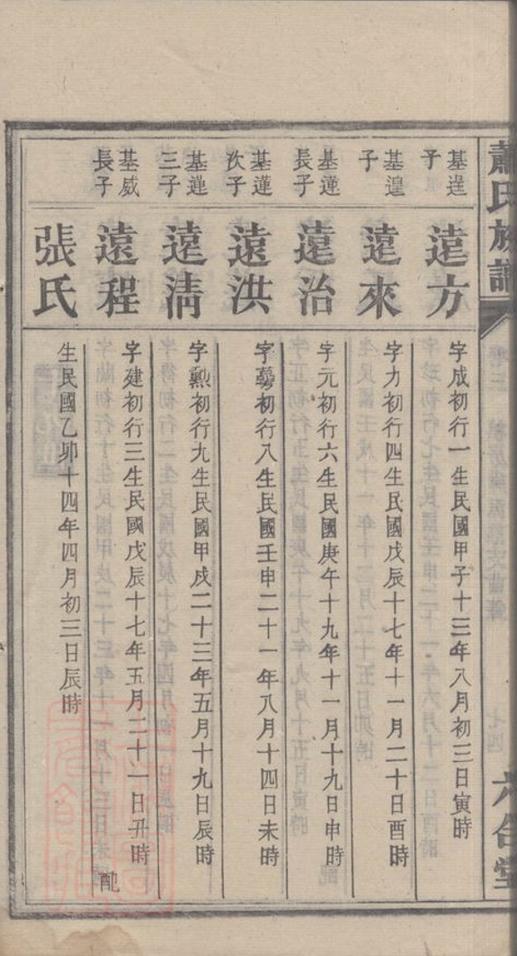 蕭氏族譜
六合堂
基逞子
遠方
字成初行一生民國甲子十三年八月初三日寅時
基湟子
遠來
字力初行四生民國戊辰十七年十一月二十日酉時
基蓮長子
遠治
字元初行六生民國庚午十九年十一月十九日申時
基蓮次子
遠洪
字初行八生民國壬申二十一年八月十四日未時
基蓮三子
遠清
字勲初行九生民國甲戍二十三年五月十九日辰時
基威長子
遠程
字建初行三生民國戊辰十七年五月二十一日丑時 配
張氏
生民國乙卯十四年四月初三日辰時